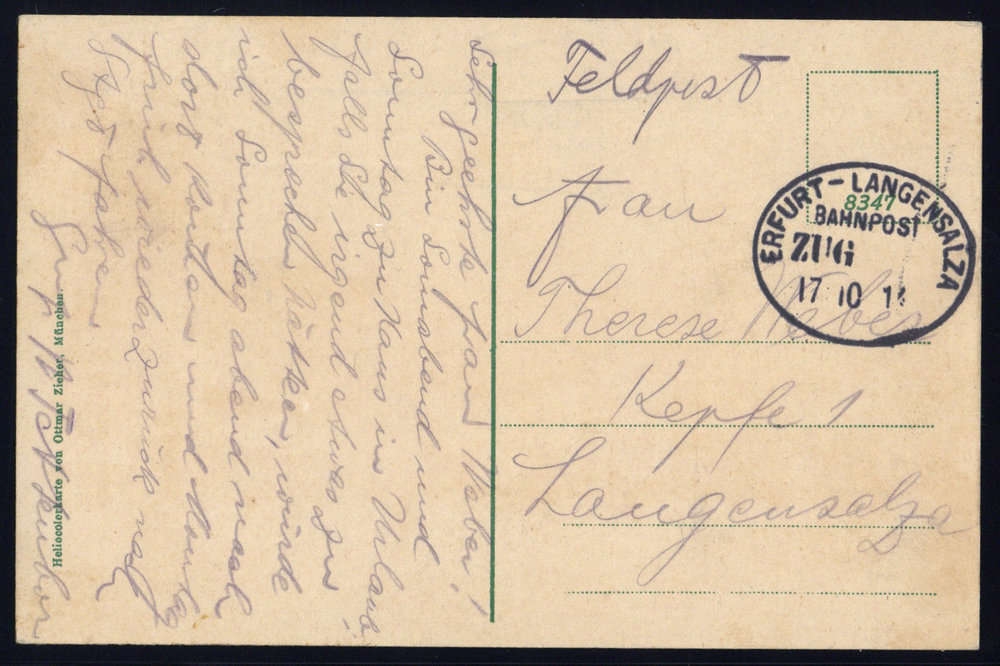 Feldpost
8347
ERFURT-LANGENSALZA
BAHNPOST
ZUG
17 10 1
Frau
Therese Weber
Kepfe 1
Langensalza
Sehr geehrte Frau Weber!
Bin Sonnabend und
Sonntag zu Haus ins Urlaub,
falls Sie irgend etwas zu
besprechen hätten, würde
ich Sonntag abend nach
dort kommen und Montag
früh wieder zurück nach
fahren
Heliocolorkarte von Ottmar Zieher, München.